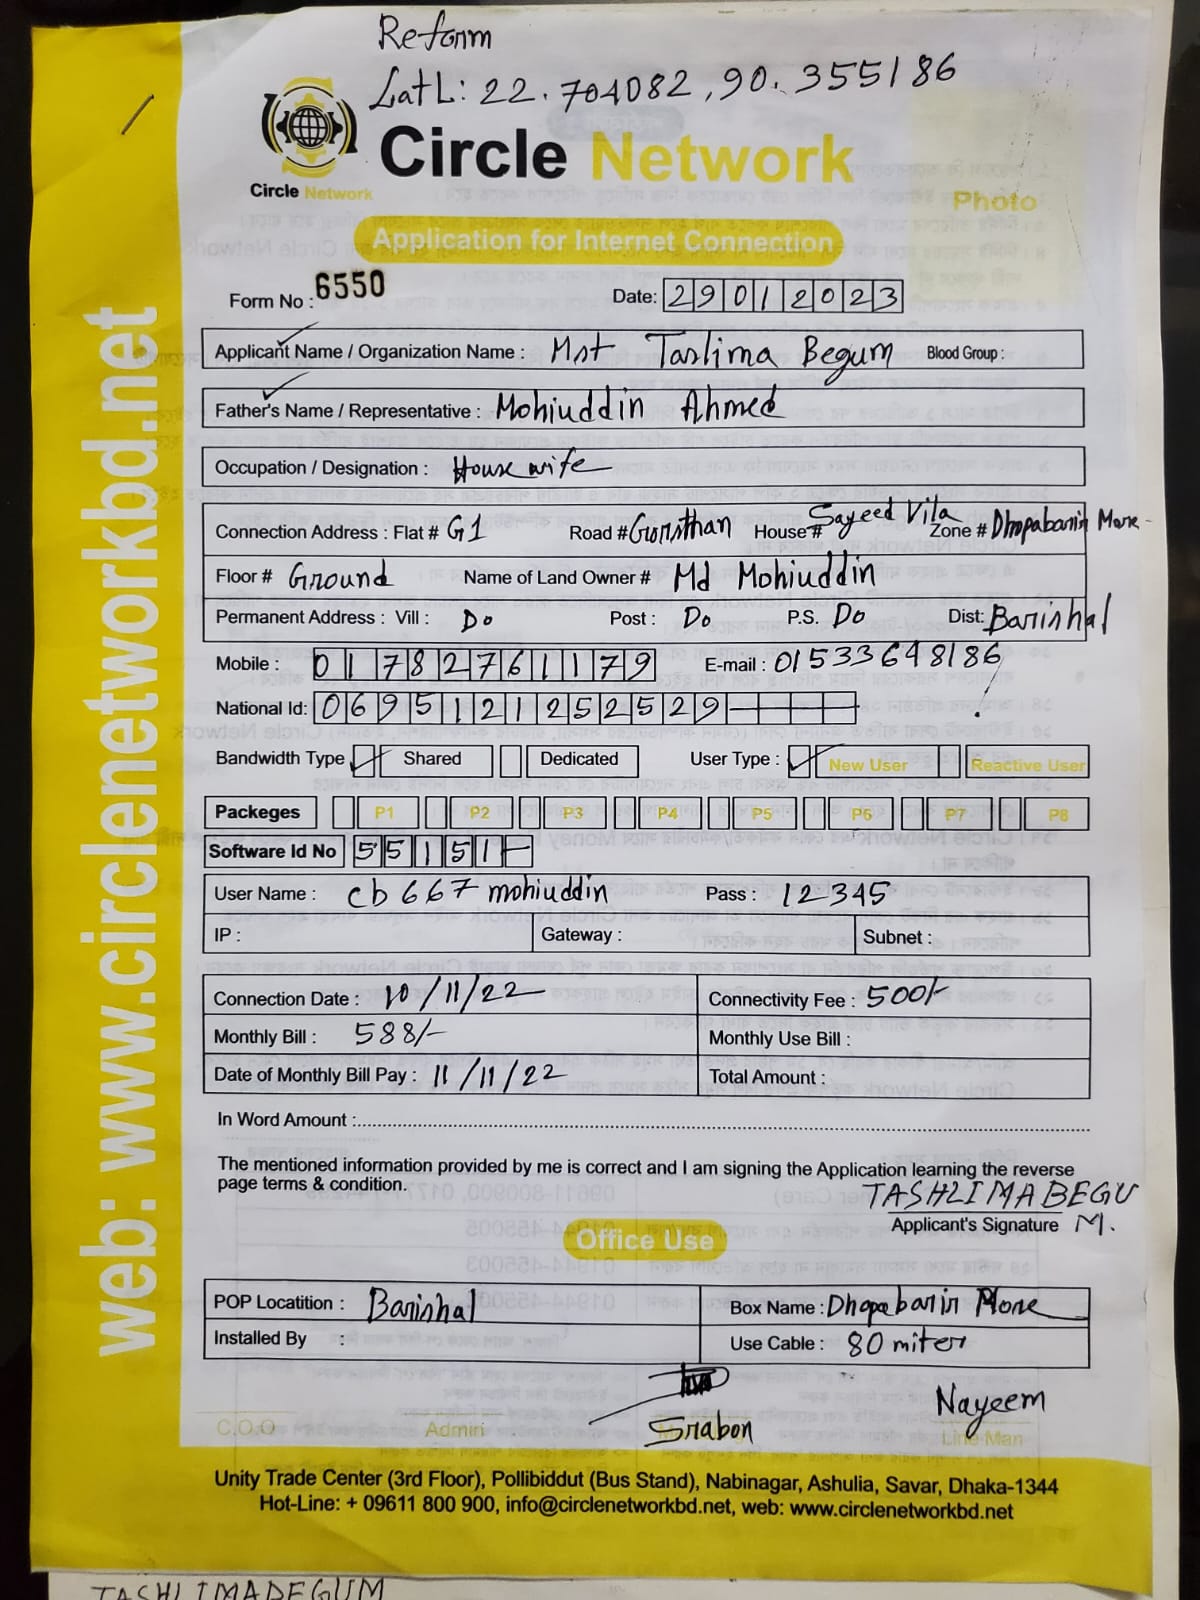 Reform
LatL: 22.704082, 90.355186
Circle Network
Circle Network
Photo
Application for Internet Connection
Form No : 6550 Date: 29012023
Applicant Name / Organization Name : Mst Taslima Begum Blood Group :
Father's Name / Representative : Mohiuddin Ahmed
Occupation / Designation : House wife
Connection Address : Flat # G1 Road # Gorsthan House # Sayeed Vila Zone # Dhopabarir More
Floor # Ground Name of Land Owner # Md Mohiuddin
Permanent Address : Vill : Do Post : Do P.S. Do Dist: Barishal
Mobile : 01782761179 E-mail : 01533648186
National Id: 0695121252529
Bandwidth Type Shared Dedicated User Type : New User Reactive User
Packeges P1 P2 P3 P4 P5 P6 P7 P8
Software Id No 55151
User Name : cb667mohiuddin Pass : 12345
IP : Gateway : Subnet :
Connection Date : 10/11/22 Connectivity Fee : 500/-
Monthly Bill : 588/- Monthly Use Bill :
Date of Monthly Bill Pay : 11/11/22 Total Amount :
In Word Amount :
The mentioned information provided by me is correct and I am signing the Application learning the reverse
page terms & condition.
TASHLIMABEGU
Applicant's Signature M.
Office Use
POP Locatition : Barishal Box Name : Dhopabarir More
Installed By : Use Cable : 80 miter
Srabon Nayeem
C.O.O Admin Line Man
Unity Trade Center (3rd Floor), Pollibiddut (Bus Stand), Nabinagar, Ashulia, Savar, Dhaka-1344
Hot-Line: + 09611 800 900, info@circlenetworkbd.net, web: www.circlenetworkbd.net
web: www.circlenetworkbd.net
TASHLIMABEGUM